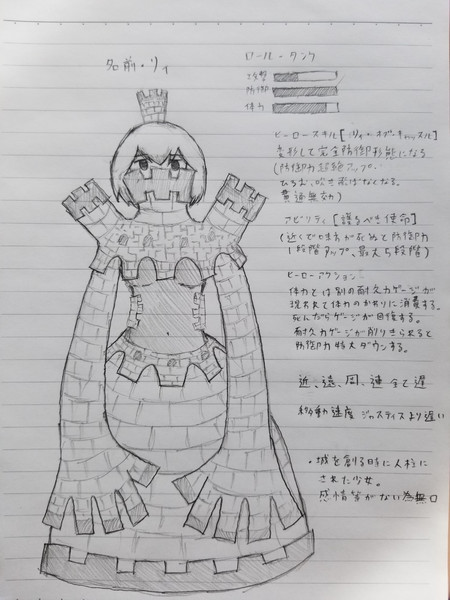 名前・リィ
ロール・タンク
攻撃
防御
体力
ヒーロースキル[リィ・オブ・キャッスル]
変形して完全防御形態になる
(防御力超絶アップ
ひるむ、吹き飛ばなくなる。
貫通無効)
アビリティ[護るべき使命]
(近くで味方が死ぬと防御力
1段階アップ、最大5段階)
ヒーローアクション:
体力とは別の耐久力ゲージが
現れて体力のかわりに消費する。
死んだらゲージが回復する。
耐久力ゲージが削りきられると
防御力特大ダウンする。
近、遠、周、連 全て遅
移動速度 ジャスティスより遅い
・城を創る時に人柱に
された少女。
感情等がない為無口